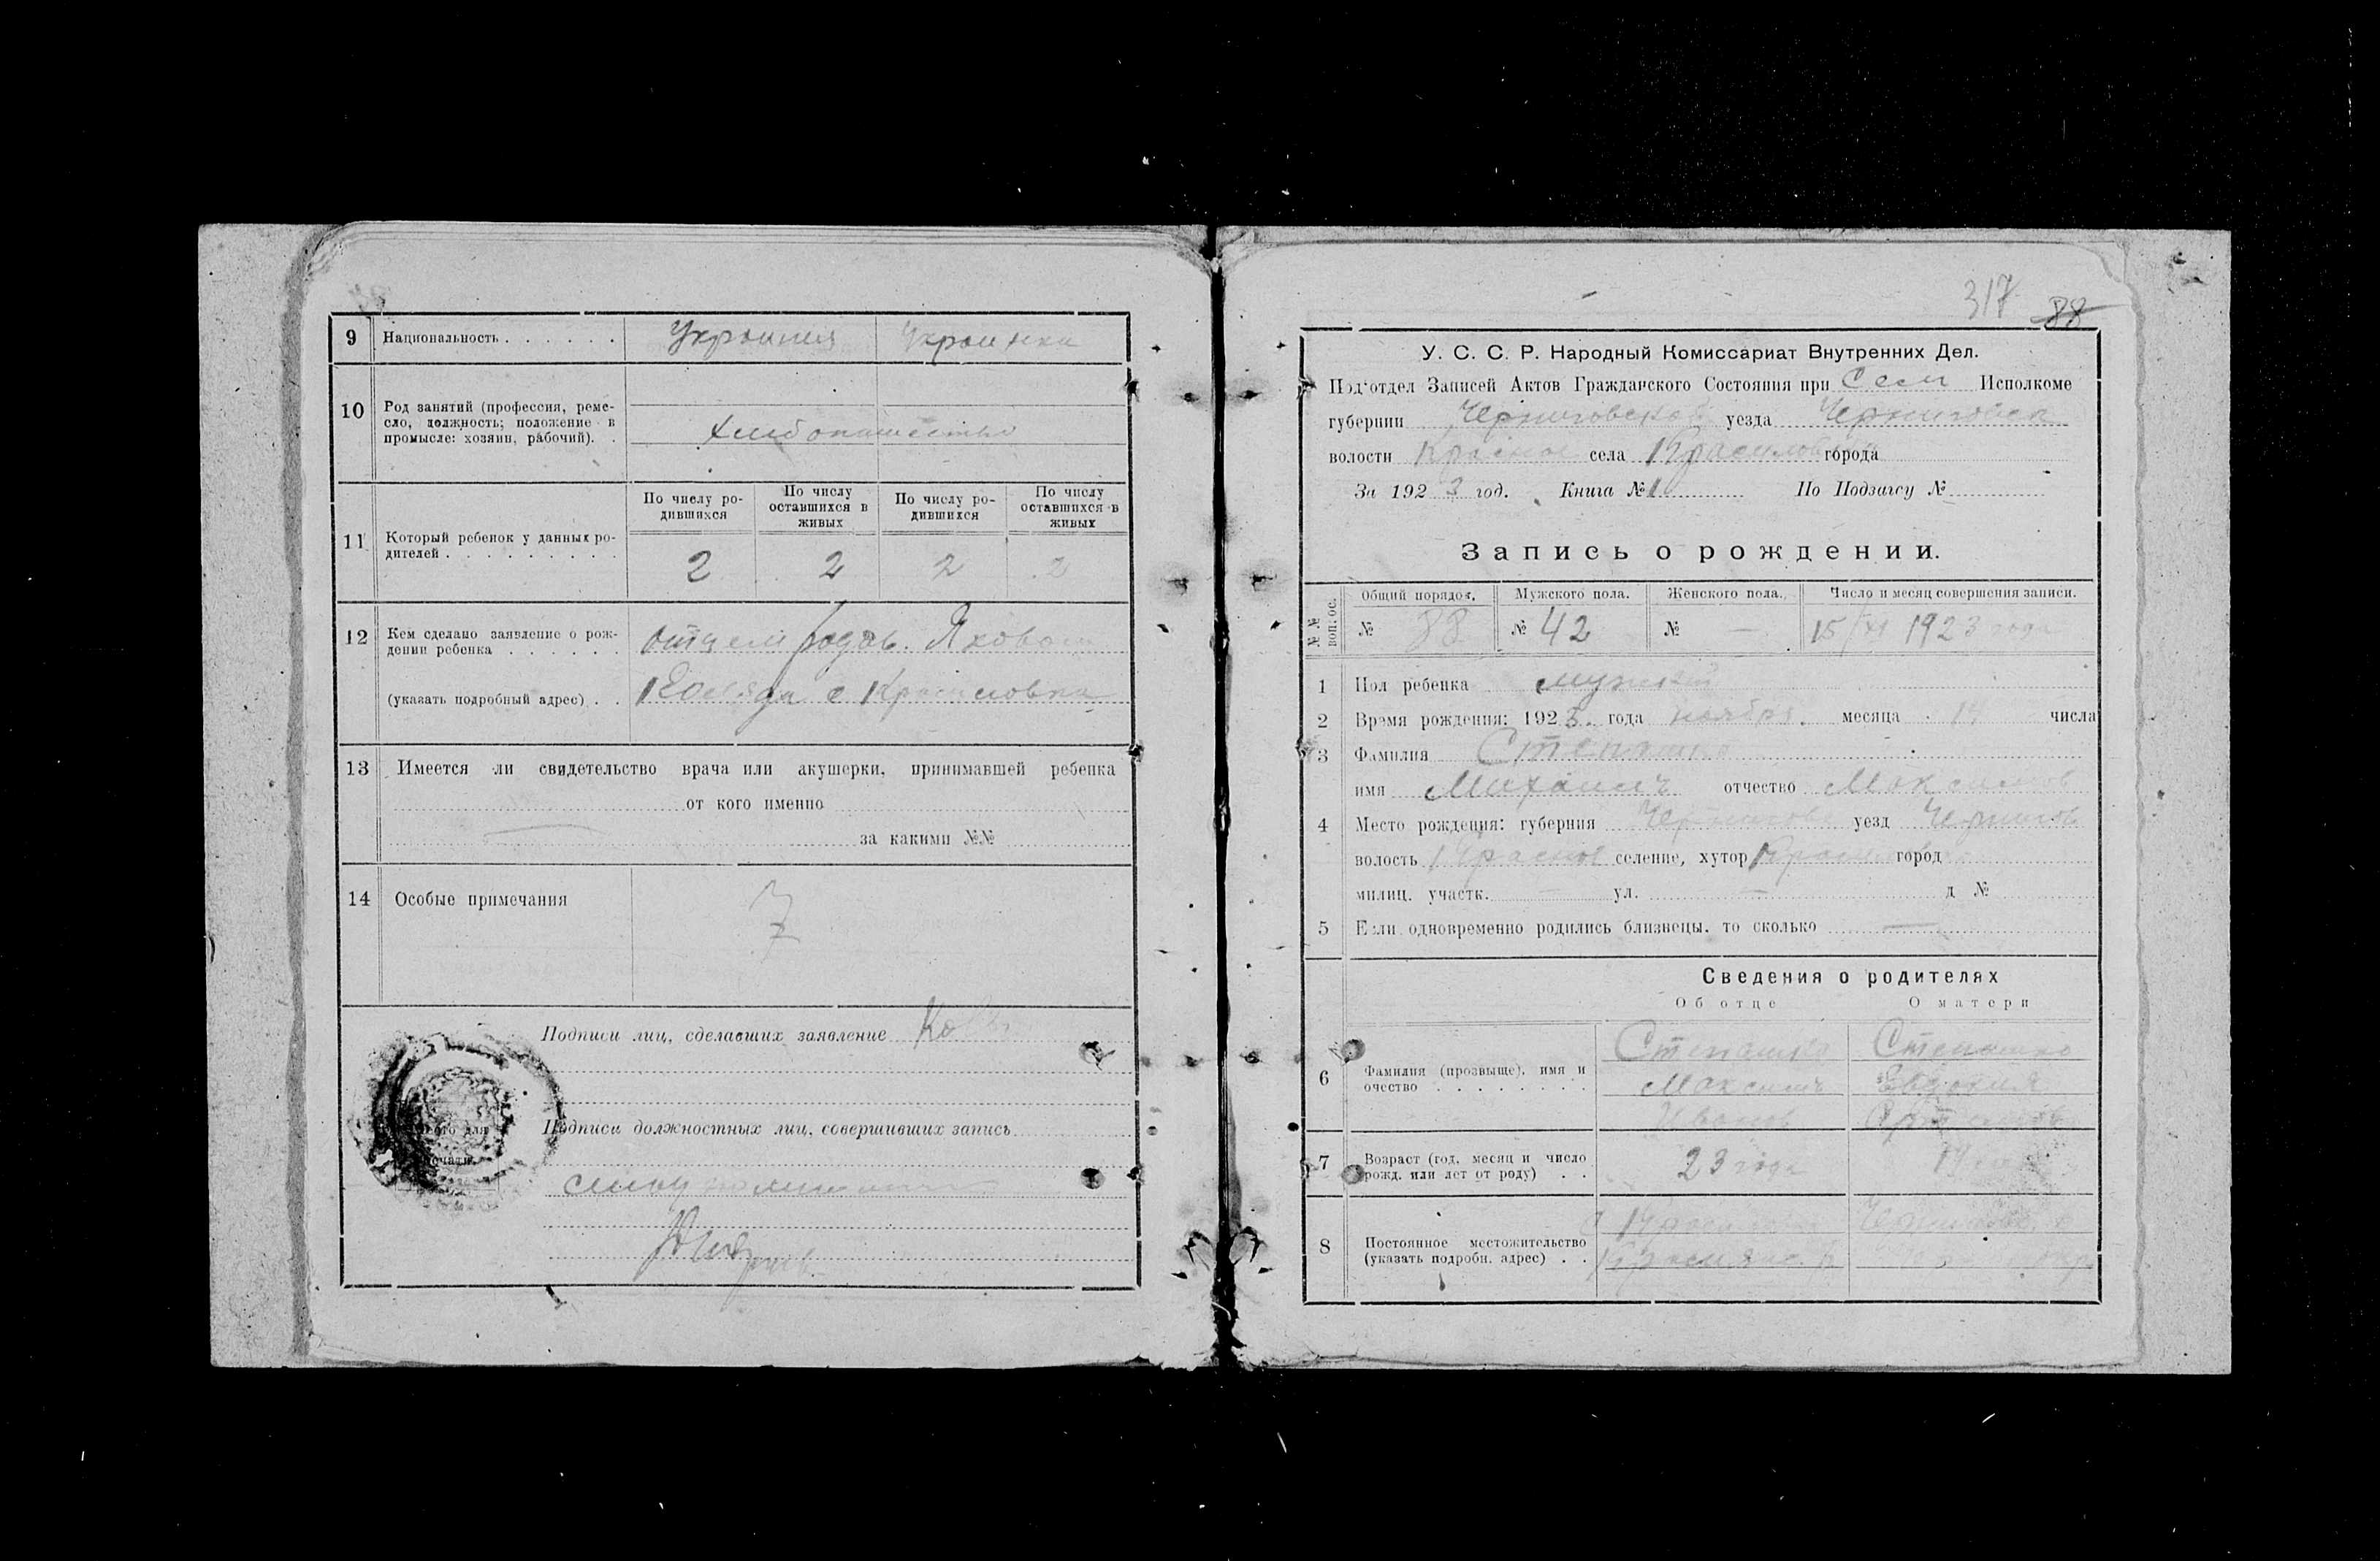 9 Национальность . . . . . . Украинец Украинка
10 Род занятий (профессия, реме-
сло, должность; положение в
промысле: хозяин, рабочий). .
хлебопашество
11 Который ребенок у данных ро-
дителей . . . . . . . . .
По числу ро-
дившихся
По числу
оставшихся в
живых
По числу ро-
дившихся
По числу
оставшихся в
живых
2 2 2 2
12 Кем сделано заявление о рож-
дении ребенка . . . . . . отцем
(указать подробный адрес) . . с Красиловка
13 Имеется ли свидетельство врача или акушерки, принимавшей ребенка
от кого именно
за какими №№
14 Особые примечания
Подписи лиц, сделавших заявление
Подписи должностных лиц, совершивших запись
Место для
печати.
317 88
У. С. С. Р. Народный Комиссариат Внутренних Дел.
Под'отдел Записей Актов Гражданского Состояния при Исполкоме
губернии Черниговской уезда Черниговск
волости Красное села Красиловка города
За 1923 год. Книга № 1 По Подзагсу №
Запись о рождении.
№ № вопрос.
Общий порядок. Мужского пола. Женского пола. Число и месяц совершения записи.
№ 88 № 42 № — 15/XI 1923 года
1 Пол ребенка мужской
2 Время рождения: 1923 года ноября месяца 14 числа
3 Фамилия Степашко
имя Михаилъ отчество Максимов
4 Место рождения: губерния Чернигов уезд Чернигов
волость Красное селение, хутор город
милиц. участк. — ул. — д №
5 Если одновременно родились близнецы. то сколько —
Сведения о родителях
Об отце О матери
6 Фамилия (прозвище), имя и
очество . . . . . . . .
Степашко Степашко
Максимъ Евдокия
Иванов
7 Возраст (год, месяц и число
рожд. или лет от роду) . .
23 года
8 Постоянное местожительство
(указать подробн. адрес) . .